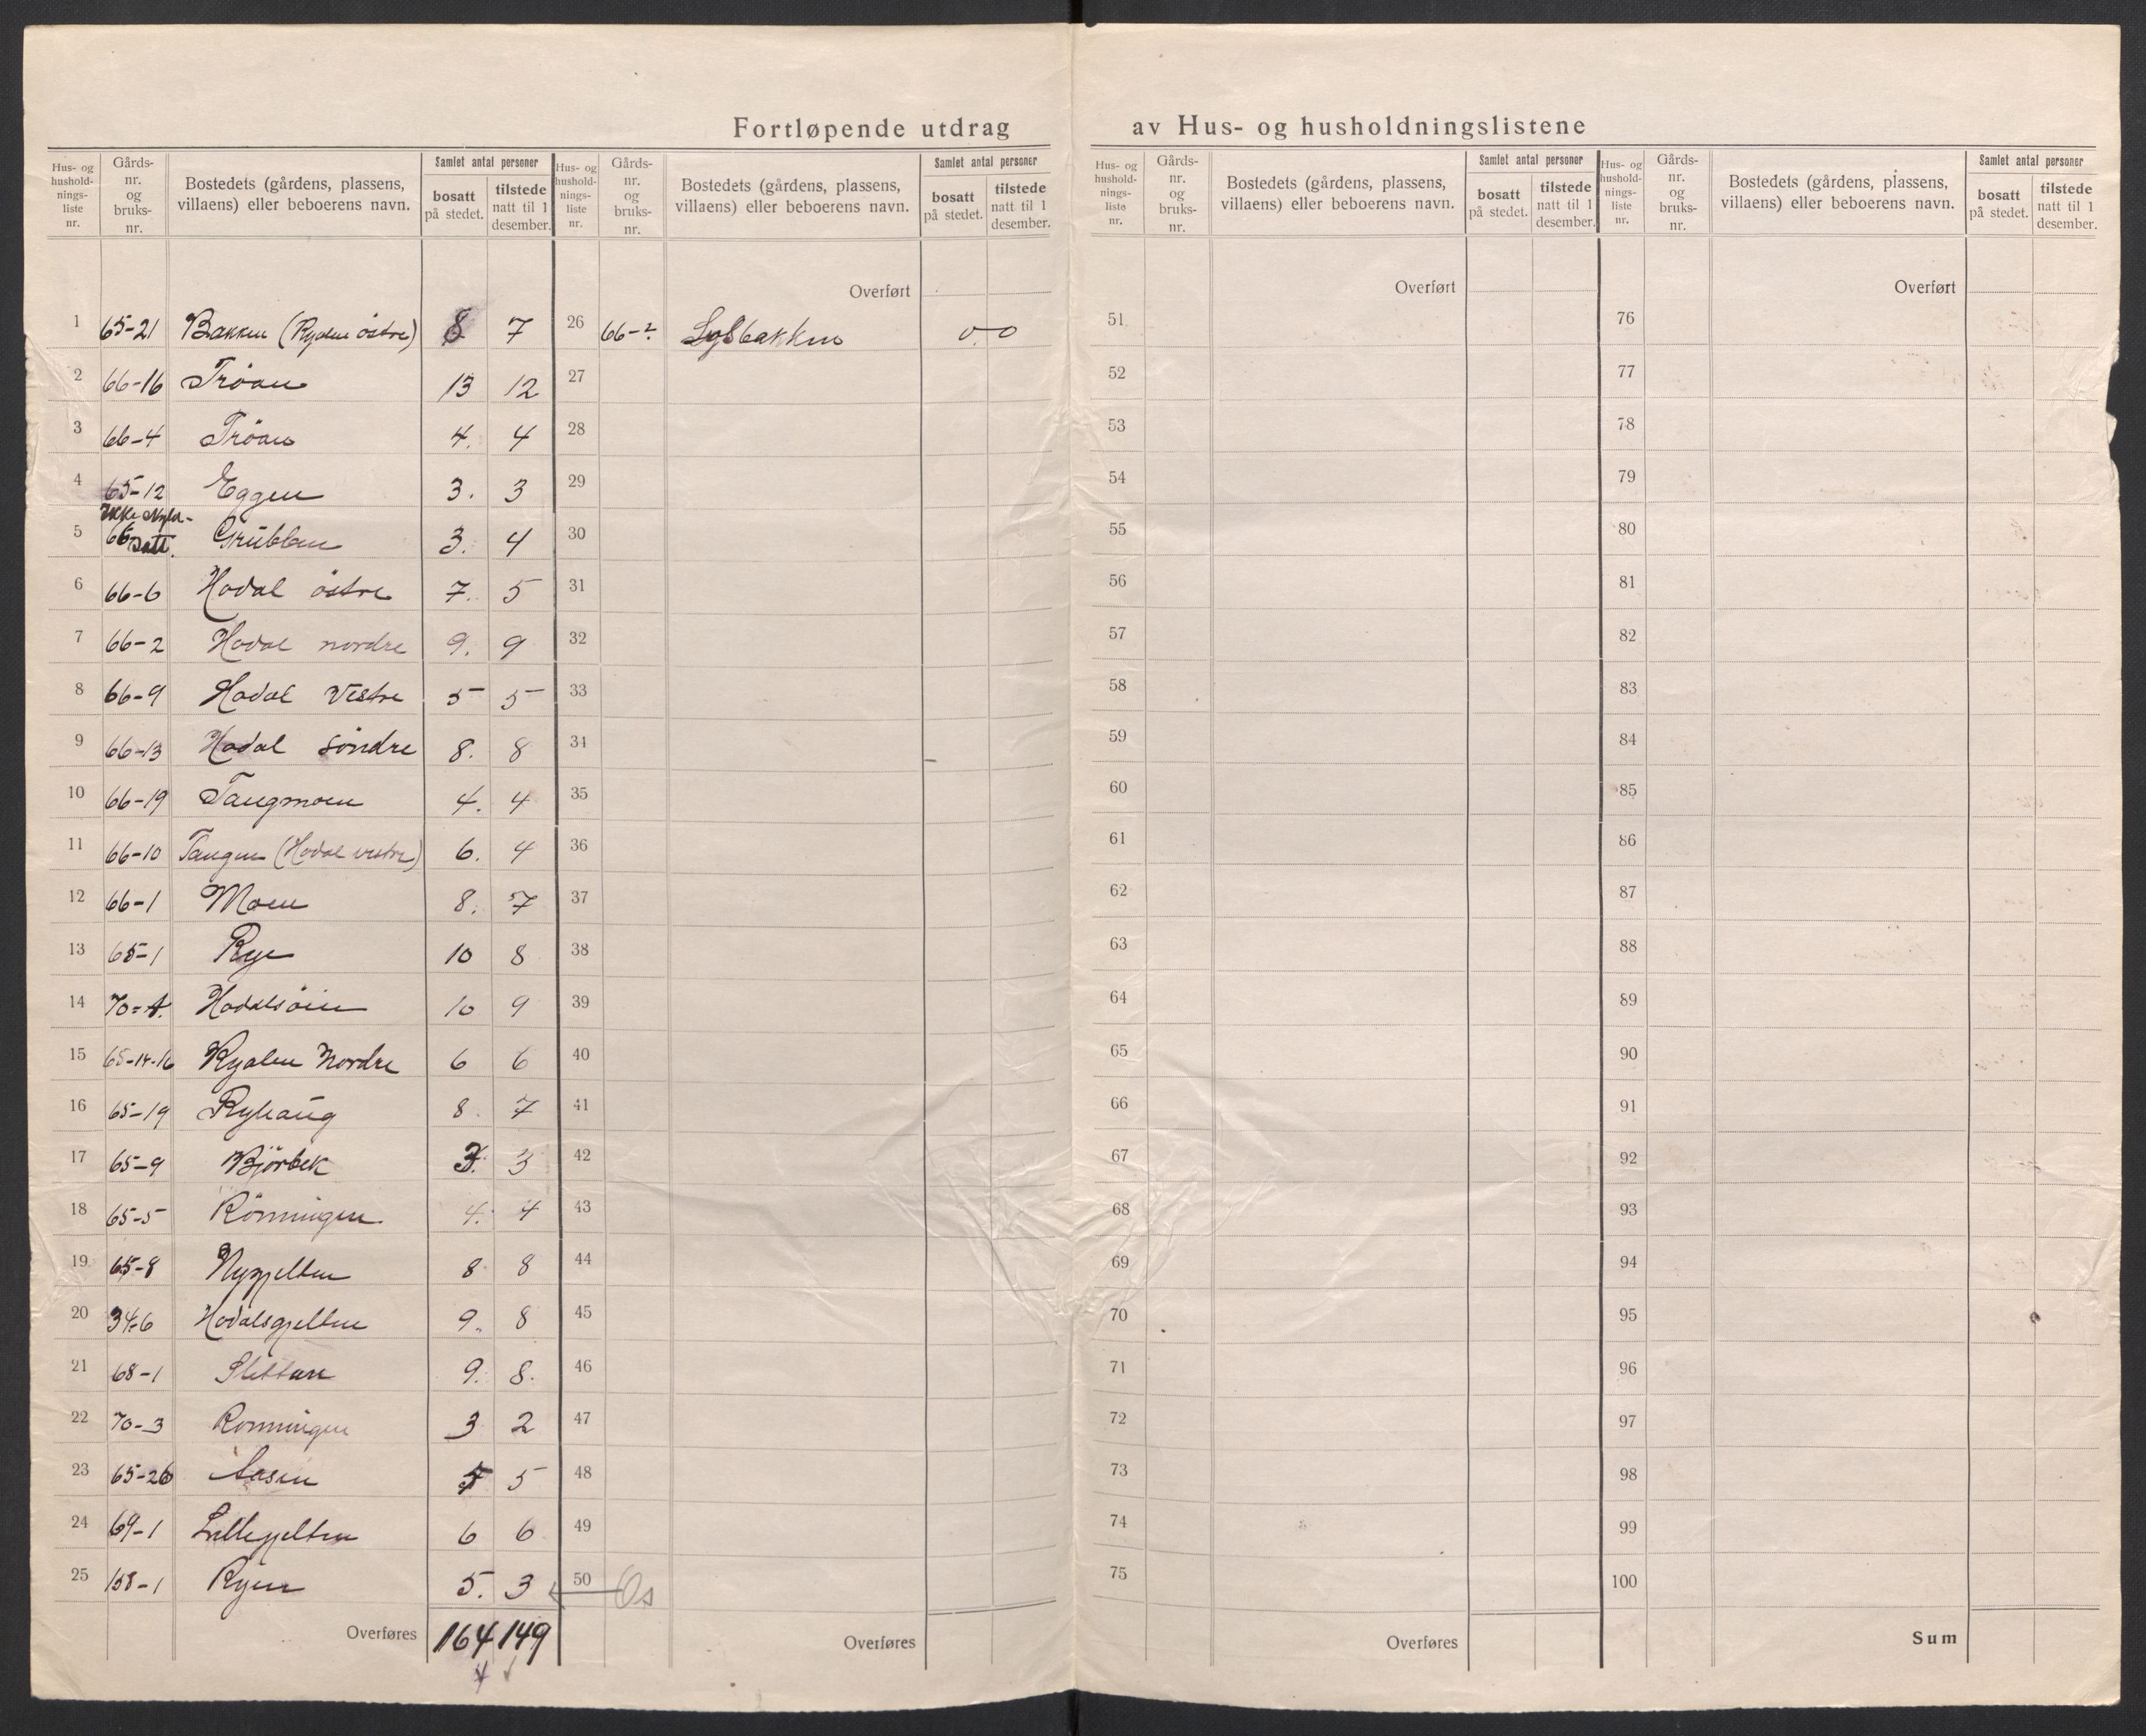 Fortløpende utdrag av Hus- og husholdningslistene
Hus- og hushold- nings- liste nr. Gårds- nr. og bruks- nr. Bostedets (gårdens, plassens, villaens) eller beboerens navn. Samlet antal personer bosatt på stedet. tilstede natt til 1 desember.
Hus- og hushold- nings- liste nr. Gårds- nr. og bruks- nr. Bostedets (gårdens, plassens, villaens) eller beboerens navn. Samlet antal personer bosatt på stedet. tilstede natt til 1 desember.
Hus- og hushold- nings- liste nr. Gårds- nr. og bruks- nr. Bostedets (gårdens, plassens, villaens) eller beboerens navn. Samlet antal personer bosatt på stedet. tilstede natt til 1 desember.
Hus- og hushold- nings- liste nr. Gårds- nr. og bruks- nr. Bostedets (gårdens, plassens, villaens) eller beboerens navn. Samlet antal personer bosatt på stedet. tilstede natt til 1 desember.
Overført Overført Overført
1 65-21 Bakken (Ryalen östre) 8 7 26 66-2 0 0 51 76
2 66-16 Tröan 13 12 27 52 77
3 66-4 Tröan 4. 4 28 53 78
4 65-12 Eggen 3. 3 29 54 79
5 Ikke skyld- 66 satt. Grubben 3. 4 30 55 80
6 66-6 Hodal östre 7. 5 31 56 81
7 66-2 Hodal nordre 9. 9 32 57 82
8 66-9 Hodal Vestre 5 5 33 58 83
9 66-13 Hodal söndre 8. 8 34 59 84
10 66-19 Tangmoen 4. 4 35 60 85
11 66-10 Tangen (Hodal vestre) 6. 4 36 61 86
12 66-1 Moen 8. 7 37 62 87
13 65-1 Rye 10 8 38 63 88
14 70= Hodalsöien 10 9 39 64 89
15 65-14-16 Ryalen Nordre 6 6 40 65 90
16 65-19 Ryhaug 8. 7 41 66 91
17 65-9 Björbek 3. 3 42 67 92
18 65-5 Rönningen 4. 4 43 68 93
19 65-8 Nygjelten 8 8 44 69 94
20 34-6 Hodalsgjelten 9. 8 45 70 95
21 68-1 Sletten 9. 8. 46 71 96
22 70-3 Ronningen 3 2 47 72 97
23 65-26 Aasen 5 5 48 73 98
24 69-1 Lillegjelten 6 6 49 74 99
25 158-1 Ryen 5. 3 50 Os 75 100
Overføres 164 149 Overføres Overføres Sum